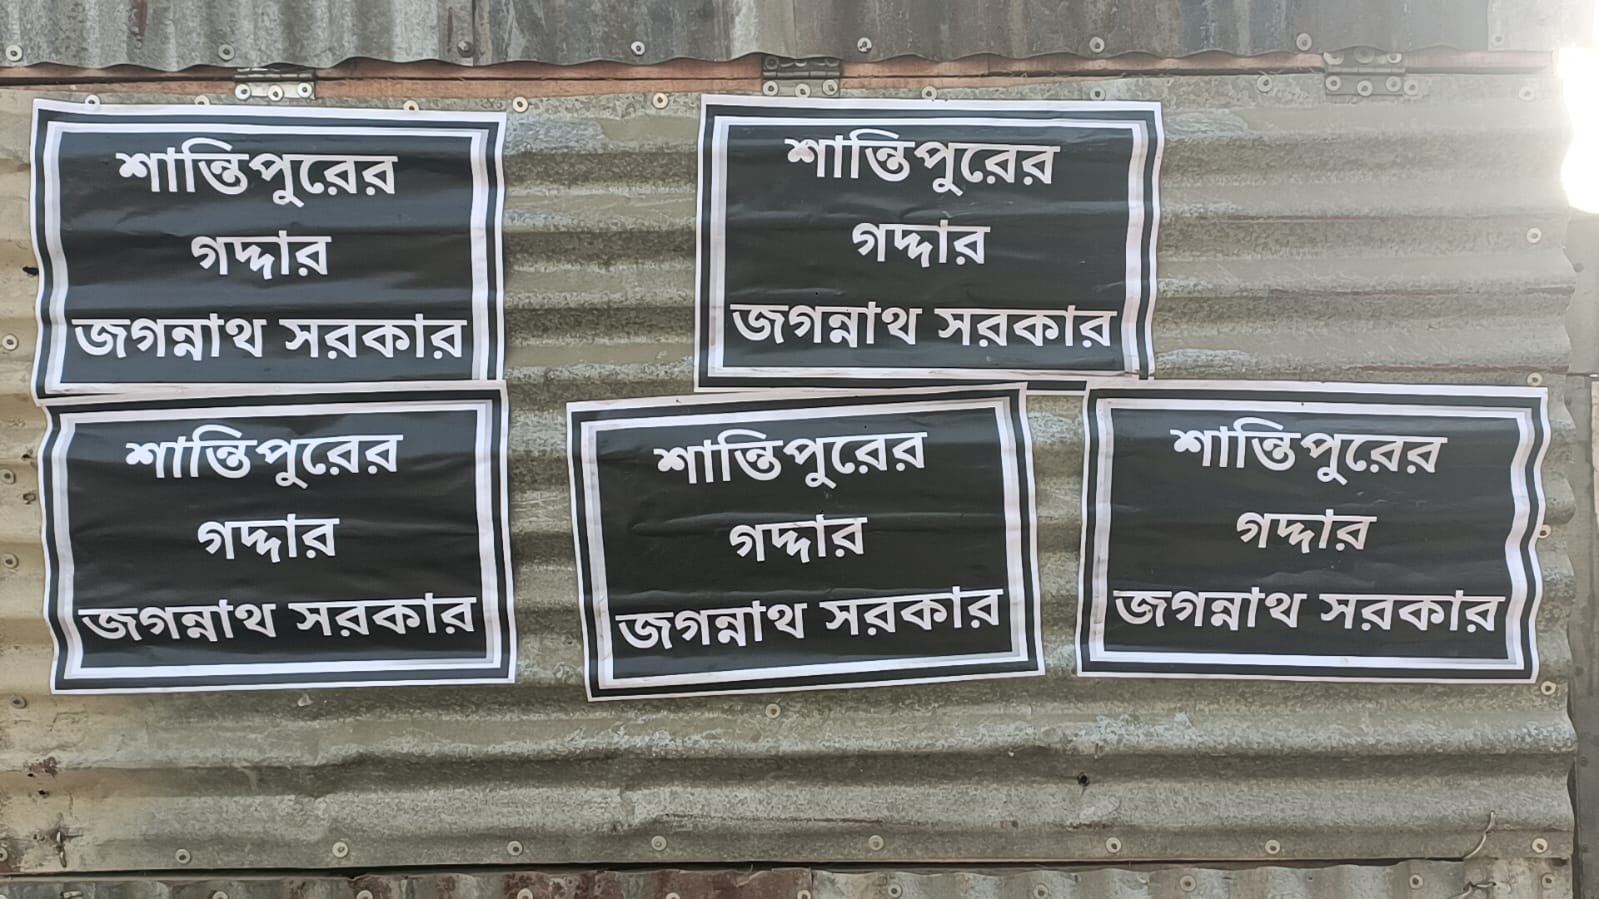 শান্তিপুরের
গদ্দার
জগন্নাথ সরকার
শান্তিপুরের
গদ্দার
জগন্নাথ সরকার
শান্তিপুরের
গদ্দার
জগন্নাথ সরকার
শান্তিপুরের
গদ্দার
জগন্নাথ সরকার
শান্তিপুরের
গদ্দার
জগন্নাথ সরকার